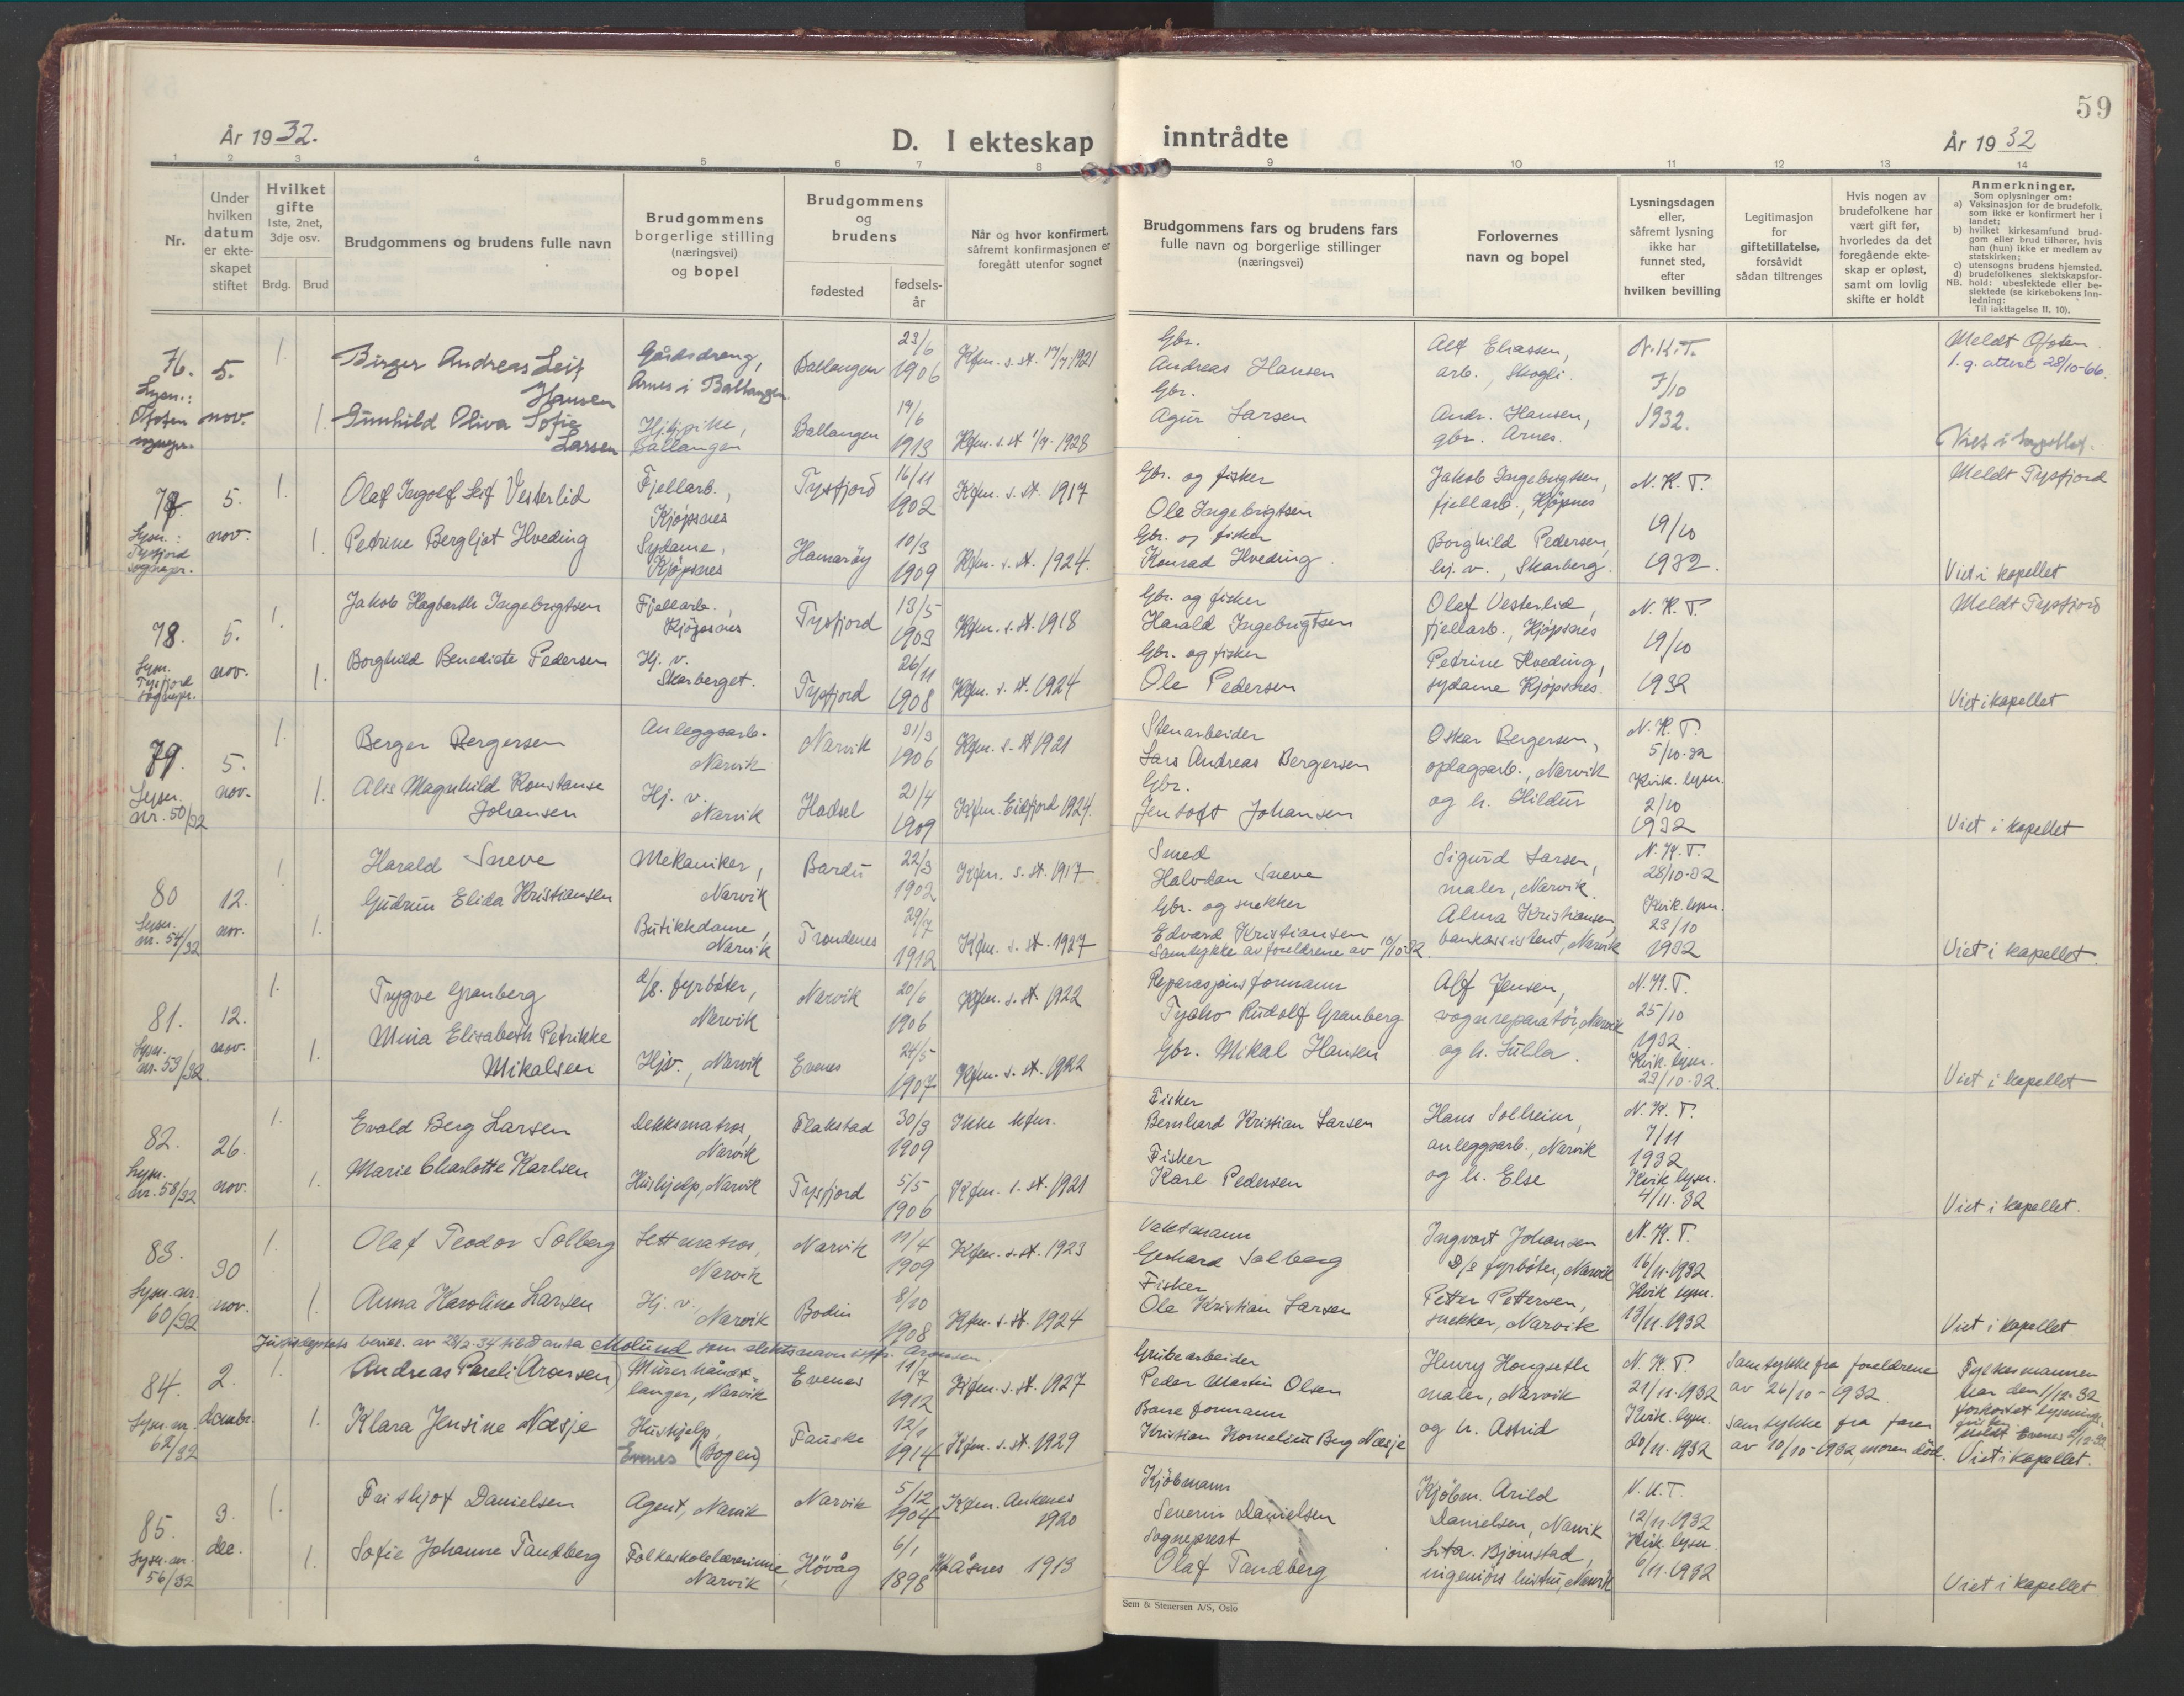 59
År 1932.
D. I ekteskap inntrådte
År 1932
1 2 3 4 5 6 7 8 9 10 11 12 13 14
Nr.
Under hvilken datum er ekteskapet stiftet
Hvilket gifte
1ste, 2net, 3dje osv.
Brdg. Brud
Brudgommens og brudens fulle navn
Brudgommens borgerlige stilling (næringsvei) og bopel
Brudgommens og brudens
fødested
fødselsår
Når og hvor konfirmert, såfremt konfirmasjonen er foregått utenfor sognet
Brudgommens fars og brudens fars fulle navn og borgerlige stillinger (næringsvei)
Forlovernes navn og bopel
Lysningsdagen eller, såfremt lysning ikke har funnet sted, efter hvilken bevilling
Legitimasjon for giftetillatelse, forsåvidt sådan tiltrenges
Hvis nogen av brudefolkene har vært gift før, hvorledes da det foregående ekteskap er opløst, samt om lovlig skifte er holdt
Anmerkninger.
Som oplysninger om:
a) Vaksinasjon for de brudefolk, som ikke er konfirmert her i landet;
b) hvilket kirkesamfund brudgom eller brud tilhører, hvis han (hun) ikke er medlem av statskirken;
c) utensogns brudens hjemsted.
d) brudefolkenes slektskapsforhold: ubeslektede eller beslektede (se kirkebokens innledning:
NB. Til iakttagelse II, 10).
76. 5. nov. 1. Birger Andreas Leif Hansen Gårdsdreng, Arnes i Ballangen Ballangen 23/6 1906 Kfm. s. st. 17/7 1921 Gbr. Andreas Hansen Alf Eliassen, arb., Skogli. N.K.T. 7/10 1932. Meldt Ofoten. l.g. attest 28/10-66.
Lysn.: Ofoten sognepr. 1. Gunhild Oliva Sofie Larsen Hj.hj.pike, Ballangen Ballangen 14/6 1913 Kfm. s. st 1/7-1928 Gbr. Agur Larsen Andr. Hansen, gbr. Arnes.
77. 5. nov. 1. Olaf Ingolf Leif Vesterlid Fjellarb., Kjøpsnes Tysfjord 16/11 1902 Kfm. s. st. 1917 Gbr. og fisker Ole Ingebrigtsen Jakob Ingebrigtsen, fjellarb., Kjøpsnes N. K. T. 19/10 1932. Meldt Tysfjord
Lysn.: Tysfjord sognepr. 1. Petrine Bergljot Hveding Sydame, Kjøpsnes Hamarøy 10/3 1909 Kfm. s. st. 1924. Gbr. og fisker Konrad Hveding. Borghild Pedersen, hj. v., Skarberg. Viet i kapellet
78. 5. nov. 1. Jakob Hagbarth Ingebrigtsen Fjellarb., Kjøpsnes Tysfjord 13/5 1903 Kfm. s. st. 1918 Gbr. og fisker Harald Ingebrigtsen Olaf Vesterlid, fjellarb., Kjøpsnes N. K. T. 19/10 1932 Meldt Tysfjord
Lysn. Tysfjord sognepr. 1. Borghild Benedicte Pedersen Hj. v. Skarberget. Tysfjord 26/11 1908 Kfm. s. st. 1924 Gbr. og fisker Ole Pedersen Petrine Hveding, sydame Kjøpsnes. Viet i kapellet
79. 5. nov. 1. Berger Bergersen Anleggsarb. Narvik Narvik 31/3 1906 Kfm. s. st 1921 Stenarbeider Lars Andreas Bergersen Oskar Bergersen, oplagsarb., Narvik og h. Hildur N. K. T. 5/10-32 Kirk. lysn. 2/10 1932
Lysn. nr. 50/32 1. Alis Magnhild Konstanse Johansen Hj. v. Narvik Hadsel 21/4 1909 Kfm. Eidfjord 1924. Gbr. Jentoft Johansen Viet i kapellet
80 12. nov. 1. Harald Sneve Mekaniker, Narvik Bardu 22/3 1902 Kfm. s. st. 1917 Smed Halvdan Sneve Sigurd Larsen, maler, Narvik N. K. T. 28/10-32 Kirk. lysn. 23/10 1932
Lysn. nr. 54/32 1. Gudrun Elida Kristiansen Butikkdame, Narvik Trondenes 29/7 1912 Kfm. s. st. 1927 Gbr. og snekker Edvard Kristiansen Samtykke av foreldrene av 10/10-32. Alma Kristiansen, bankassistent, Narvik Viet i kapellet.
81. 12. nov. 1. Trygve Granberg d/s. fyrbøter, Narvik Narvik 20/6 1906 Kfm. s. st. 1922 Reparasjonsformann Tycho Rudolf Granberg Alf Jensen, vognreparatør, Narvik og h. Sulla. N. K. T. 25/10 1932. Kirk. lysn. 23/10-32.
Lysn. nr. 53/32. 1. Minia Elisabeth Petrikke Mikalsen Hjv., Narvik Evenes 24/5 1907 Kfm. s. st. 1922 Gbr. Mikal Hansen Viet i kapellet
82. 26. nov. 1. Evald Berg Larsen Dekksmatros, Narvik Flakstad 30/3 1909 Ikke kfm. Fisker Bernhard Kristian Larsen Hans Solheim, anleggsarb., Narvik og h. Else N. K. T. 7/11 1932 Kirk lysn. 4/11-32
Lysn. nr. 58/32 1. Marie Charlotte Karlsen Hushjelp, Narvik Tysfjord 5/5 1906 Kfm. s. st. 1921 Fisker Karl Pedersen Viet i kapellet.
83. 30 nov. 1. Olaf Teodor Solberg Lettmatros, Narvik Narvik 11/4 1909 Kfm. s. st. 1923 Vaktmann Gerhard Solberg Ingvart Johansen D/s fyrbøter, Narvik N. K. T. 16/11-1932 Kirk lysn. 13/11-1932
Lysn. nr. 60/32 1. Anna Karoline Larsen Hj. v. Narvik Bodin 8/10 1908 Kfm. s. st. 1924 Fisker Ole Kristian Larsen Petter Pettersen, snekker, Narvik Viet i kapellet
Justisdeptets bevill. av 28/2-34 til å anta Molund som slektsnavn istf. Aronsen.
84. 2. dcmbr. 1. Andreas Pareli (Aronsen) Murerhåndtlanger, Narvik Evenes 11/7 1912 Kfm. s. st. 1927 Grubearbeider Peder Martin Olsen Henry Hongseth maler, Narvik og h. Astrid N. K. T. 21/11-1932 Kirk. lysn. 20/11-1932 Samtykke fra foreldrene av 26/10-1932. Fylkesmannen har den 1/12-32 forkortet lysningsfristen. Meldt Evenes 2/12-32
Lysn. nr. 62/32 1. Klara Jensine Næsje Hushjelp, Evenes (Bogen) Fauske 12/1 1914 Kfm. s. st. 1929 Baneformann Kristian Kornelius Berg Næsje samtykke fra faren av 10/10-1932, moren død. Viet i kapellet.
85. 3. dec. 1. Fritjhof Danielsen Agent, Narvik Narvik 5/12 1904 Kfm. Ankenes 1920 Kjøbmann Severin Danielsen Kjøbm. Arild Danielsen, Narvik N. K. T. 12/11-1932 Kirk. lysn. 6/11-1932
Lysn. nr. 56/32 1. Sofie Johanne Tandberg Folkeskolelærerinne, Narvik Høvåg 6/1 1898 Kfm. Åsnes 1913 Sogneprest Olaf Tandberg Lita Bjørnstad, ingeniørs hustru, Narvik Viet i kapellet
Sem & Stenersen A/S, Oslo